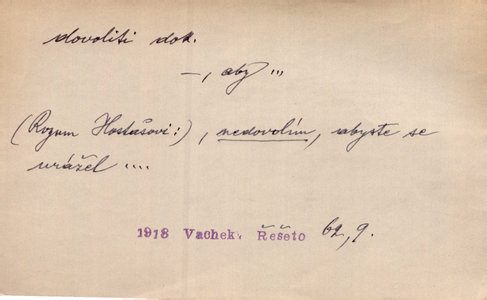 dovoliti dok.
—, aby ...
(Rozum Hostašovi:), nedovolím, abyste se
urážel ....
1918 Vachek. Řešeto 62,9.